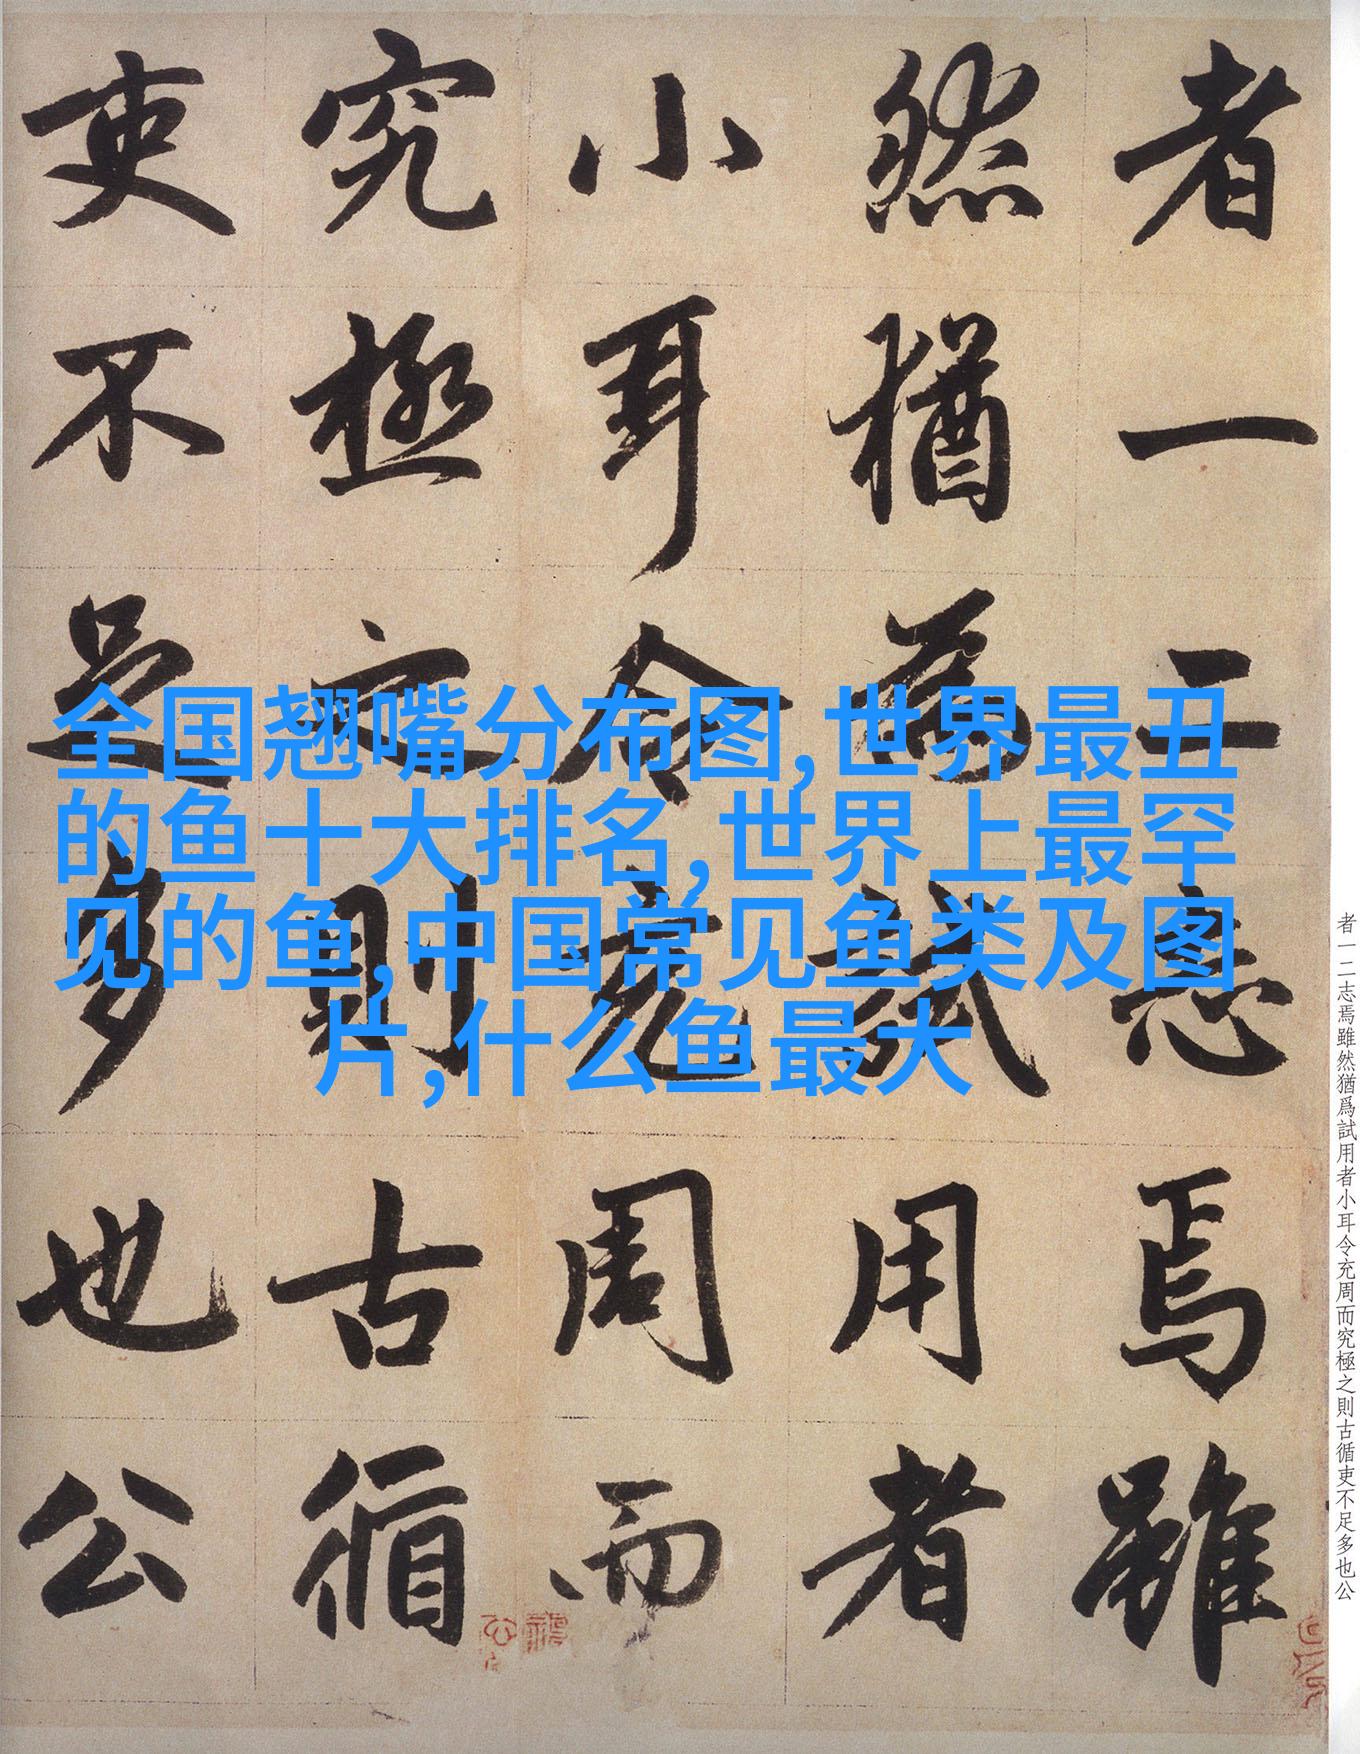 者一二志焉雖
然猶為試用者
小耳令充周而
究極之則古循
吏不足多也公
全国翘嘴分布图,世界最丑
的鱼十大排名,世界上最罕
见的鱼,中国常见鱼类及图
片,什么鱼最大
者一二志焉雖然猶爲試用者小耳令充周而究極之則古循吏不足多也公